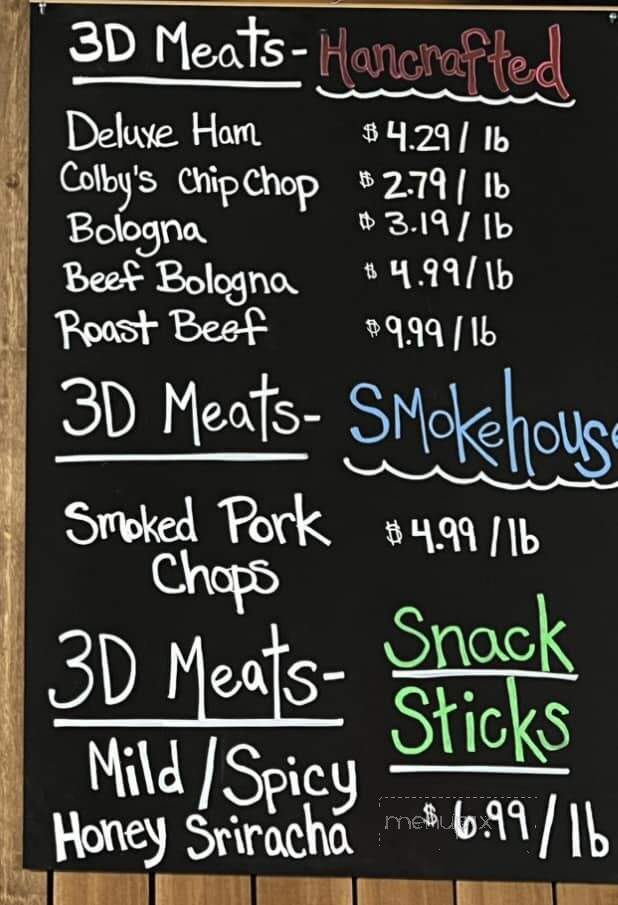 3D Meats- Hancrafted
Deluxe Ham $4.29 / lb
Colby's Chip Chop $2.79 / lb
Bologna $3.19 / lb
Beef Bologna $4.99 / lb
Roast Beef $9.99 / lb
3D Meats- Smokehouse
Smoked Pork $4.99 / lb
Chops
3D Meats- Snack
Sticks
Mild / Spicy
Honey Sriracha $6.99 / lb
menupix